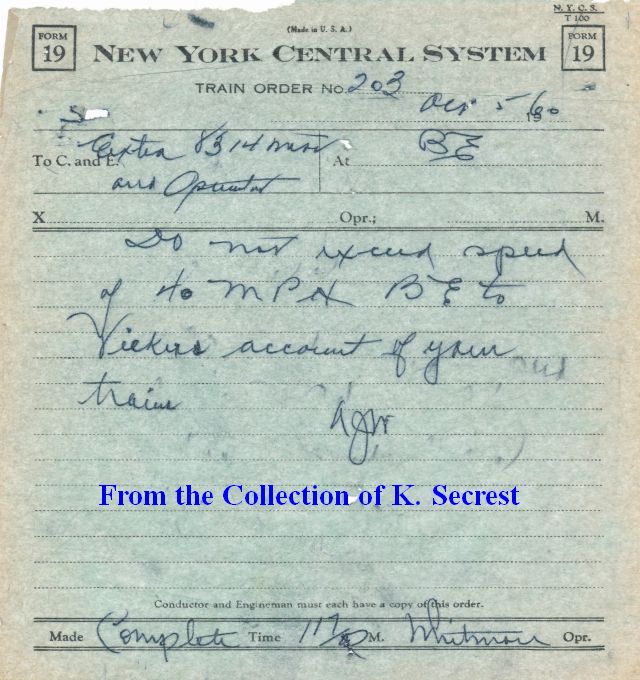 N. Y. C. S.
T 100
(Made in U. S. A.)
FORM 19
NEW YORK CENTRAL SYSTEM
FORM 19
TRAIN ORDER No. 203
5 1960
To C. and E. Extra 8314 West At BE
and Operator
X Opr.; M.
Do not exceed speed
of 40 MPH BE to
Vickers account of your
train
AJW
From the Collection of K. Secrest
Conductor and Engineman must each have a copy of this order.
Made Complete Time M. Whitmore Opr.